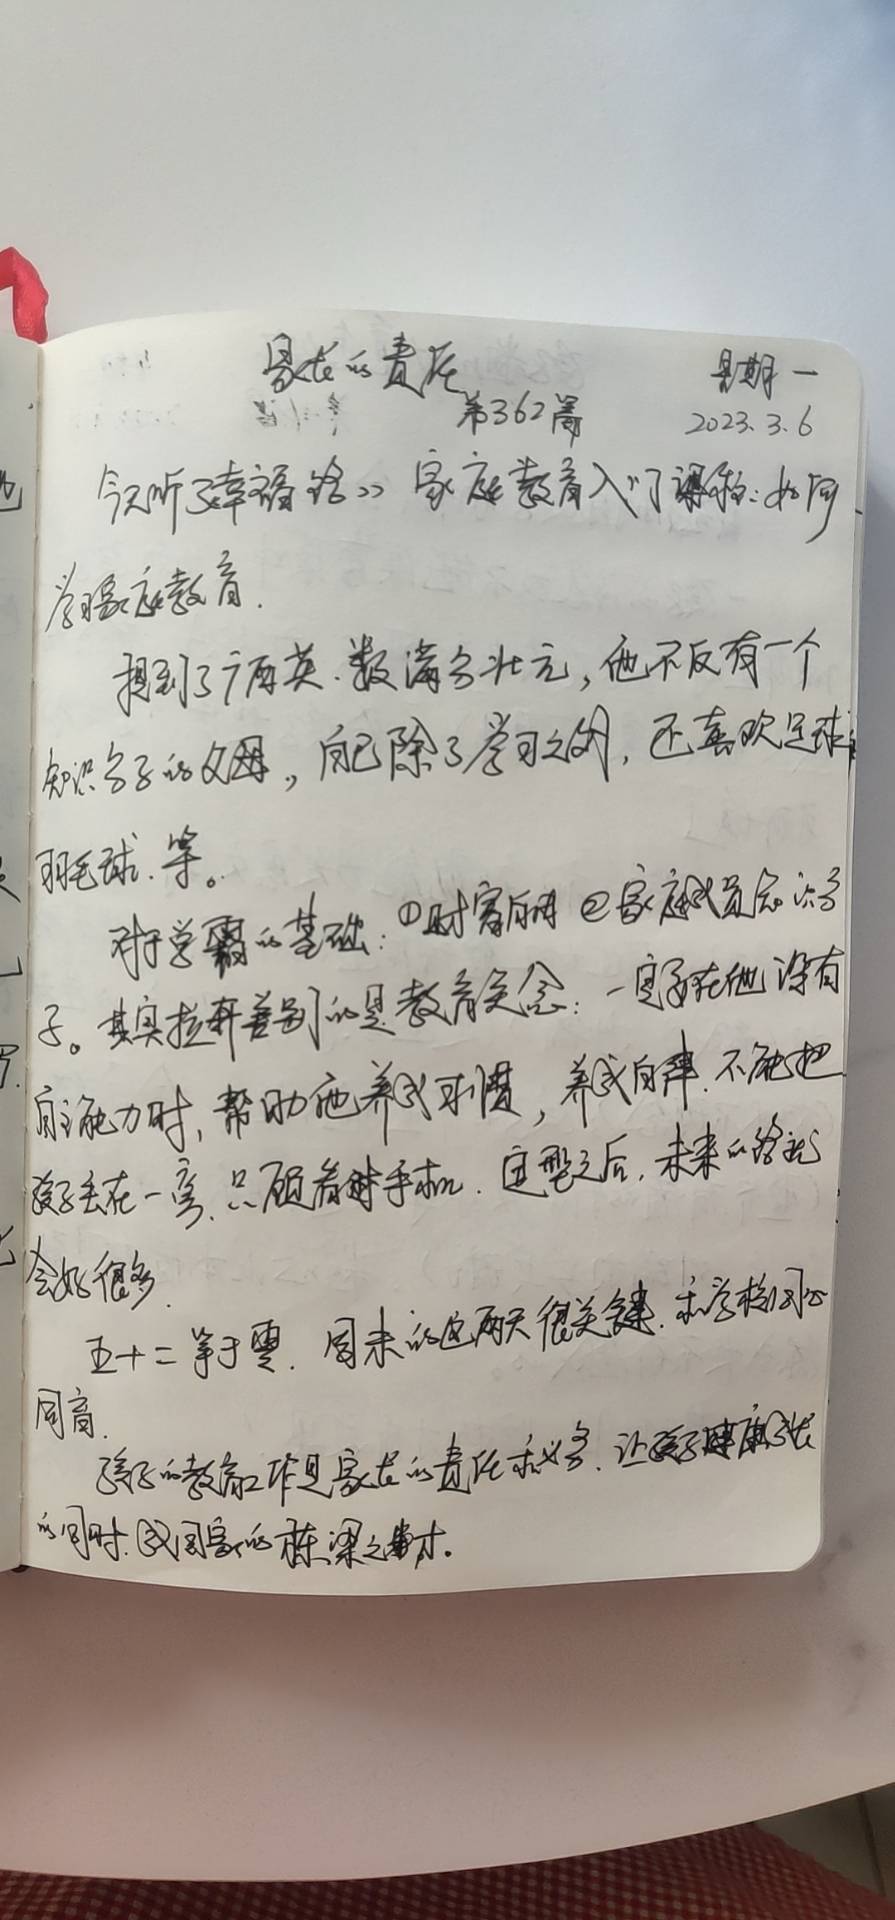 家长的责任 星期一
第362篇 2023.3.6
今天听了幸福路>> 家庭教育入门课程:如何
学习家庭教育.
提到了广西英.数满分状元,他不仅有一个
知识分子的父母,自己除了学习之外,还喜欢足球
羽毛球.等。
对于学霸的基础:①财富自由②家庭成员知识分
子。其实拉开差别的是教育关念:一定要在他没有
自主能力时,帮助他养成习惯,养成自律.不能把
孩子丢在一旁,只顾着看手机.定型之后,未来的路就
会好很多.
五十二等于零.周末的这两天很关键.和学校
同育.
孩子的教育工作是家长的责任和义务.让孩子健康成长
的同时.成国家的栋梁之才.